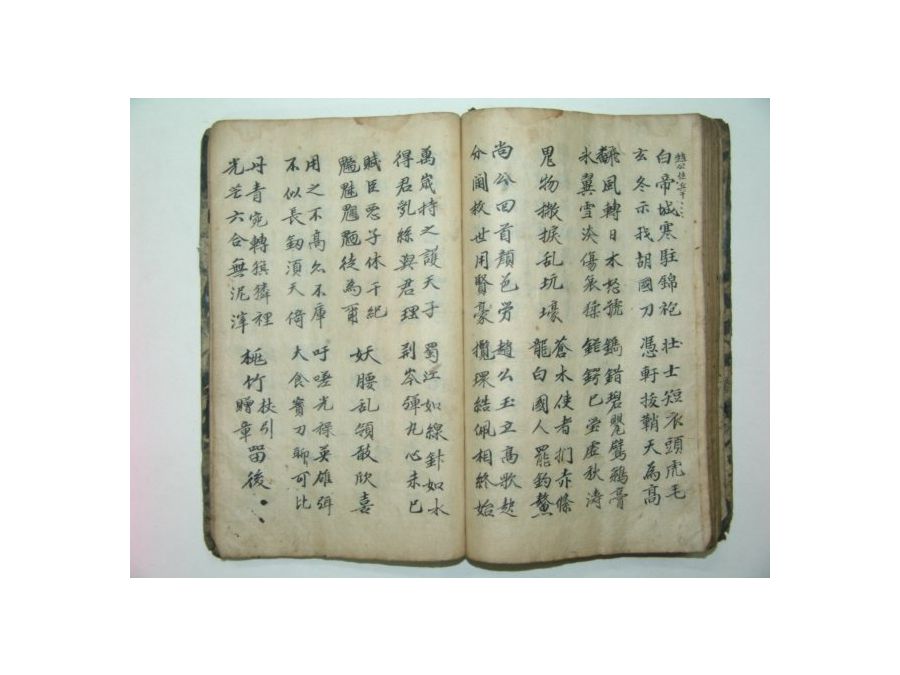 白帝城寒駐錦袍
玄冬示我胡國刀
壮士短衣頭虎毛
憑軒拔鞘天為高
飜風轉日木怒號
氷翼雪淡傷哀猱
鐫錯碧甖鷿鵜膏
鋩鍔已瑩虚秋涛
鬼物撇捩乱坑壕
蒼水使者捫赤絛
龍白國人罷釣鰲
尚公回首顔色労
分閫救世用賢豪
趙公玉立高歌起
攬環結佩相終始
萬歳持之護天子
得君乱絲與君理
蜀江如線針如水
荆岑彈丸心未已
賊臣惡子休干紀
魑魅魍魎徒為爾
妖腰乱領敢欣喜
用之不高亦不庳
不似長劔須天倚
吁嗟光禄英雄弭
大食寶刀聊可比
丹青宛轉麒麟裡
光芒六合無泥滓
桃竹杖引
贈章留後